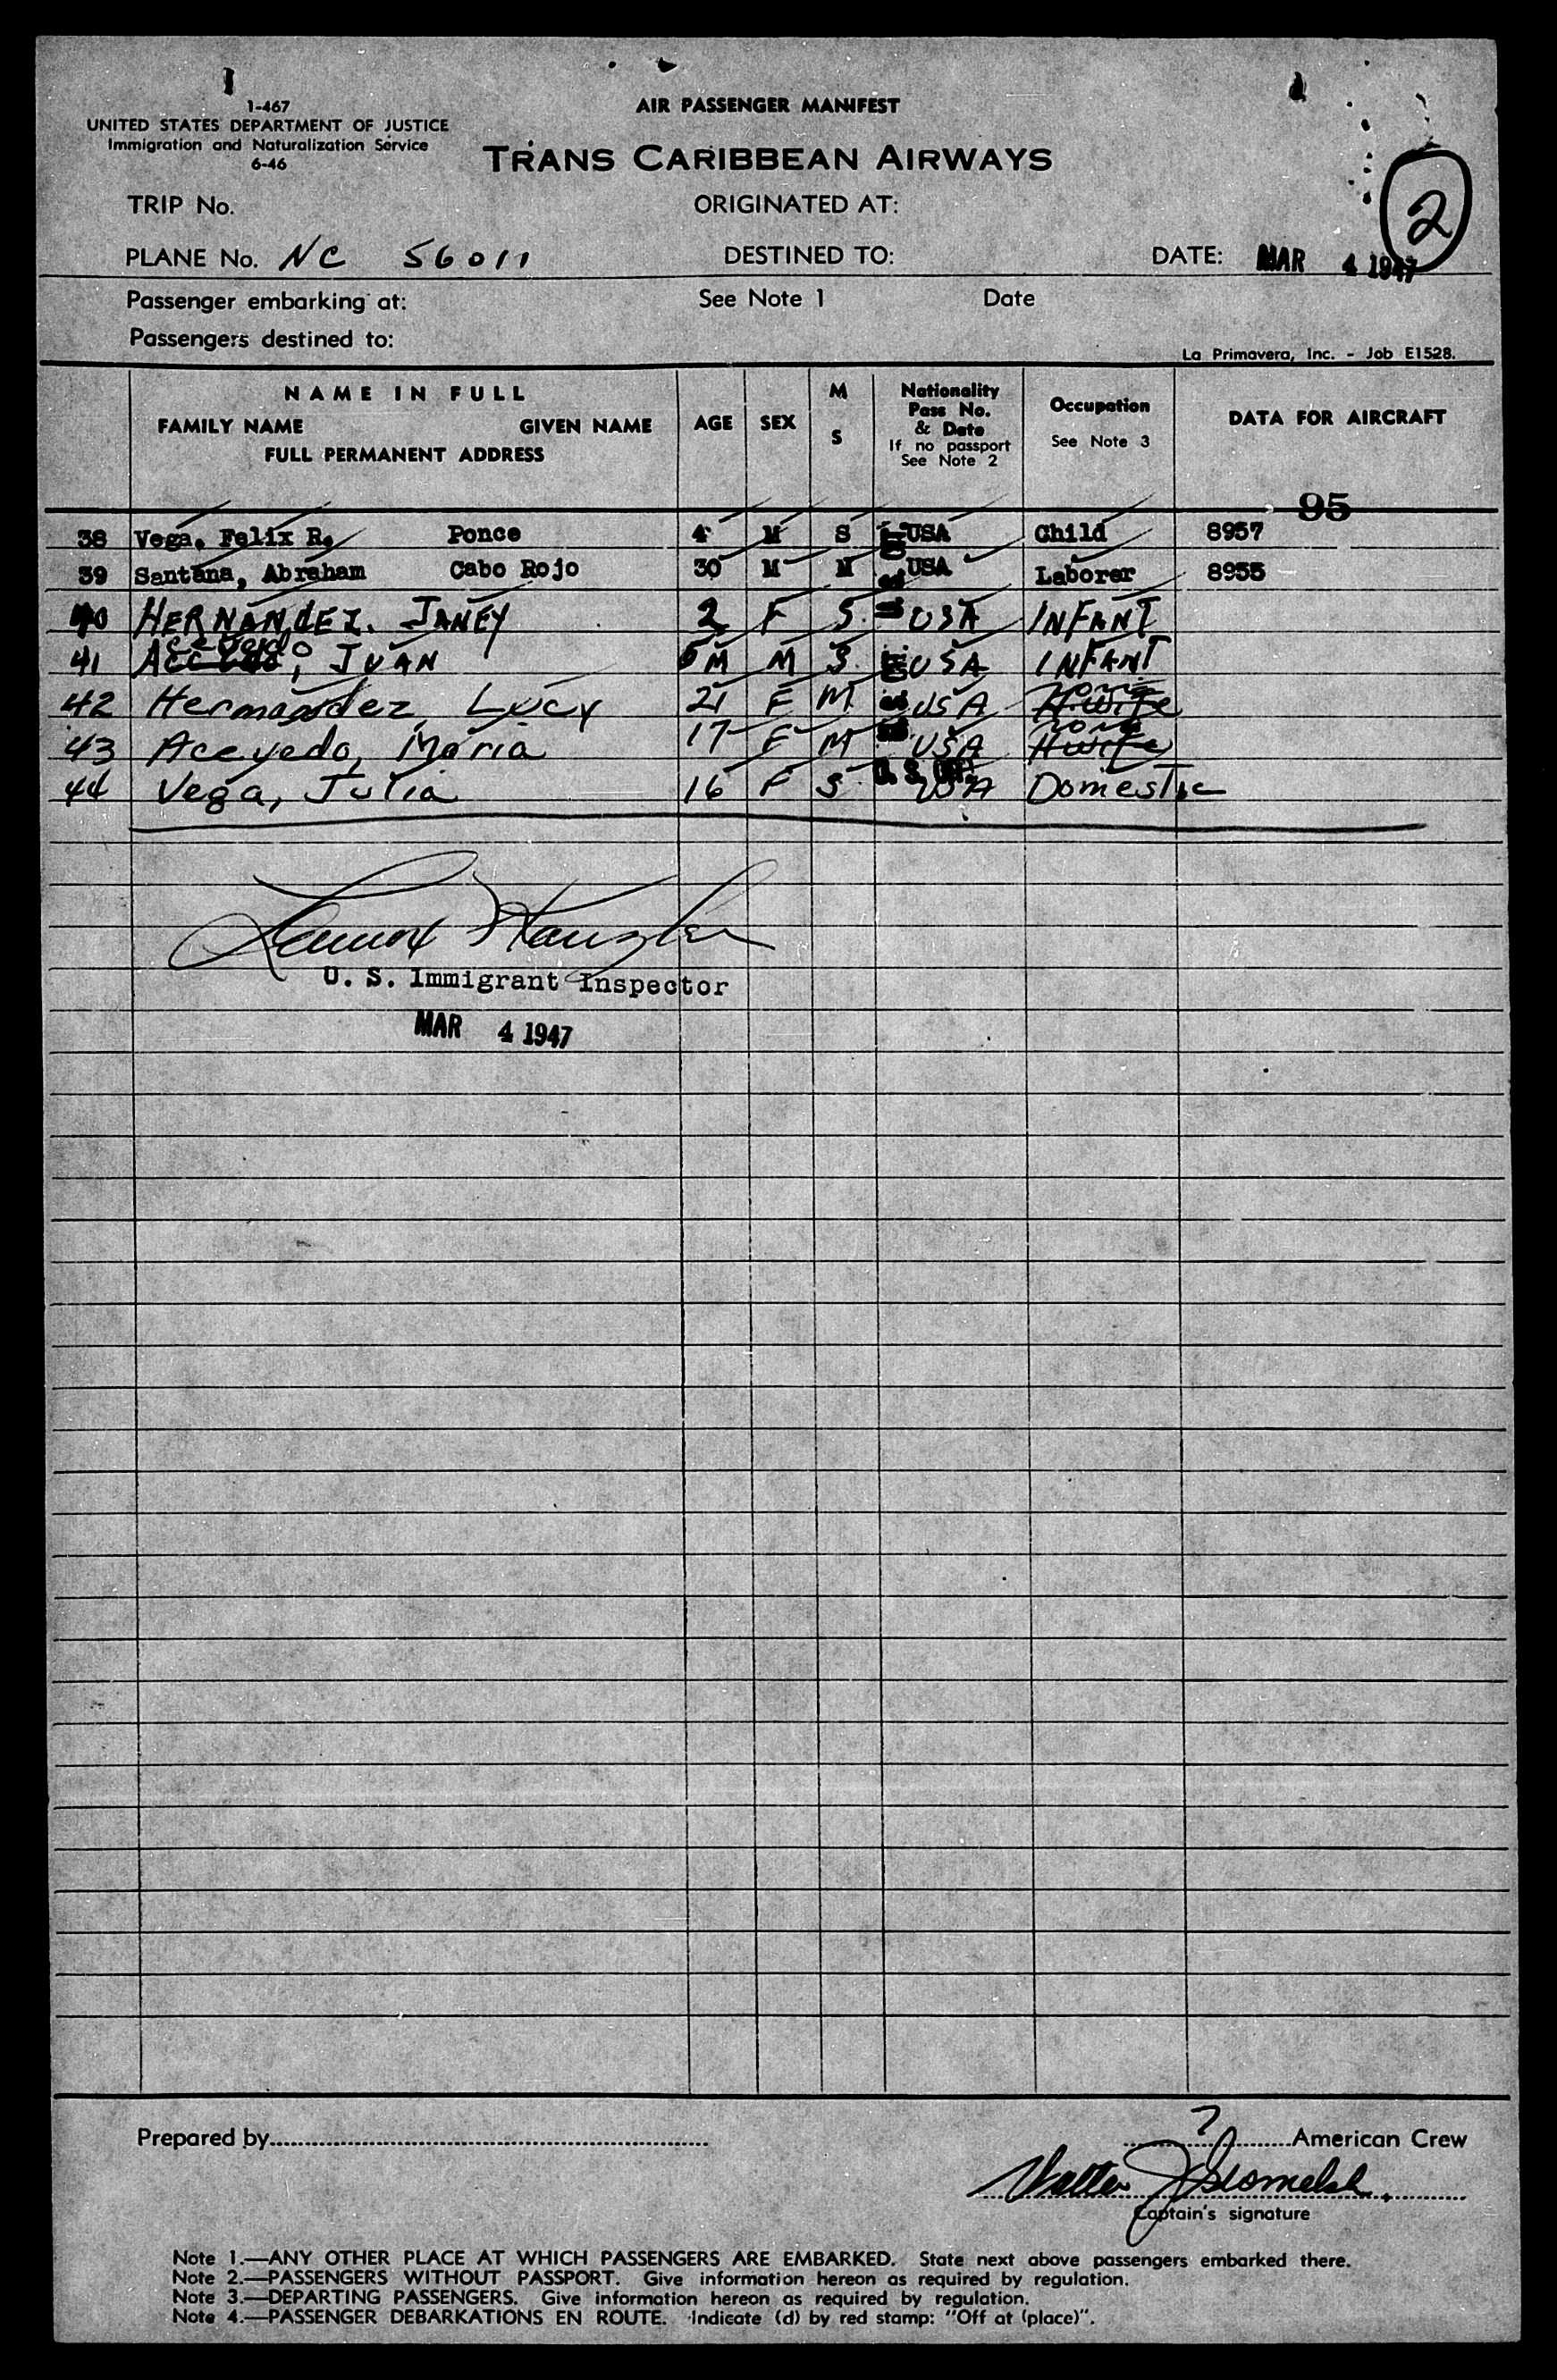 1-467
UNITED STATES DEPARTMENT OF JUSTICE
Immigration and Naturalization Service
6-46
AIR PASSENGER MANIFEST
TRANS CARIBBEAN AIRWAYS
2
TRIP No. ORIGINATED AT:
PLANE No. NC 56011 DESTINED TO: DATE: MAR 4 1947
Passenger embarking at: See Note 1 Date
Passengers destined to:
La Primavera, Inc. - Job E1528.
NAME IN FULL
FAMILY NAME GIVEN NAME
FULL PERMANENT ADDRESS
AGE
SEX
M
S
Nationality
Pass No.
& Date
If no passport
See Note 2
Occupation
See Note 3
DATA FOR AIRCRAFT
95
38 Vega, Felix R. Ponce 4 M S USA Child 8957
39 Santana, Abraham Cabo Rojo 30 M M USA Laborer 8955
40 HERNANDEZ. JANEY 2 F S. USA INFANT
41 Acevedo, JUAN 5M M S. USA INFANT
42 Hernandez, Lucy 21 F M USA none H.wife
43 Acevedo, Maria 17 F M USA none Hwife
44 Vega, Julia 16 F S. USA Domestic
U. S. Immigrant Inspector
MAR 4 1947
Prepared by
7 American Crew
Walter J.
Captain's signature
Note 1.—ANY OTHER PLACE AT WHICH PASSENGERS ARE EMBARKED. State next above passengers embarked there.
Note 2.—PASSENGERS WITHOUT PASSPORT. Give information hereon as required by regulation.
Note 3.—DEPARTING PASSENGERS. Give information hereon as required by regulation.
Note 4.—PASSENGER DEBARKATIONS EN ROUTE. Indicate (d) by red stamp: "Off at (place)".